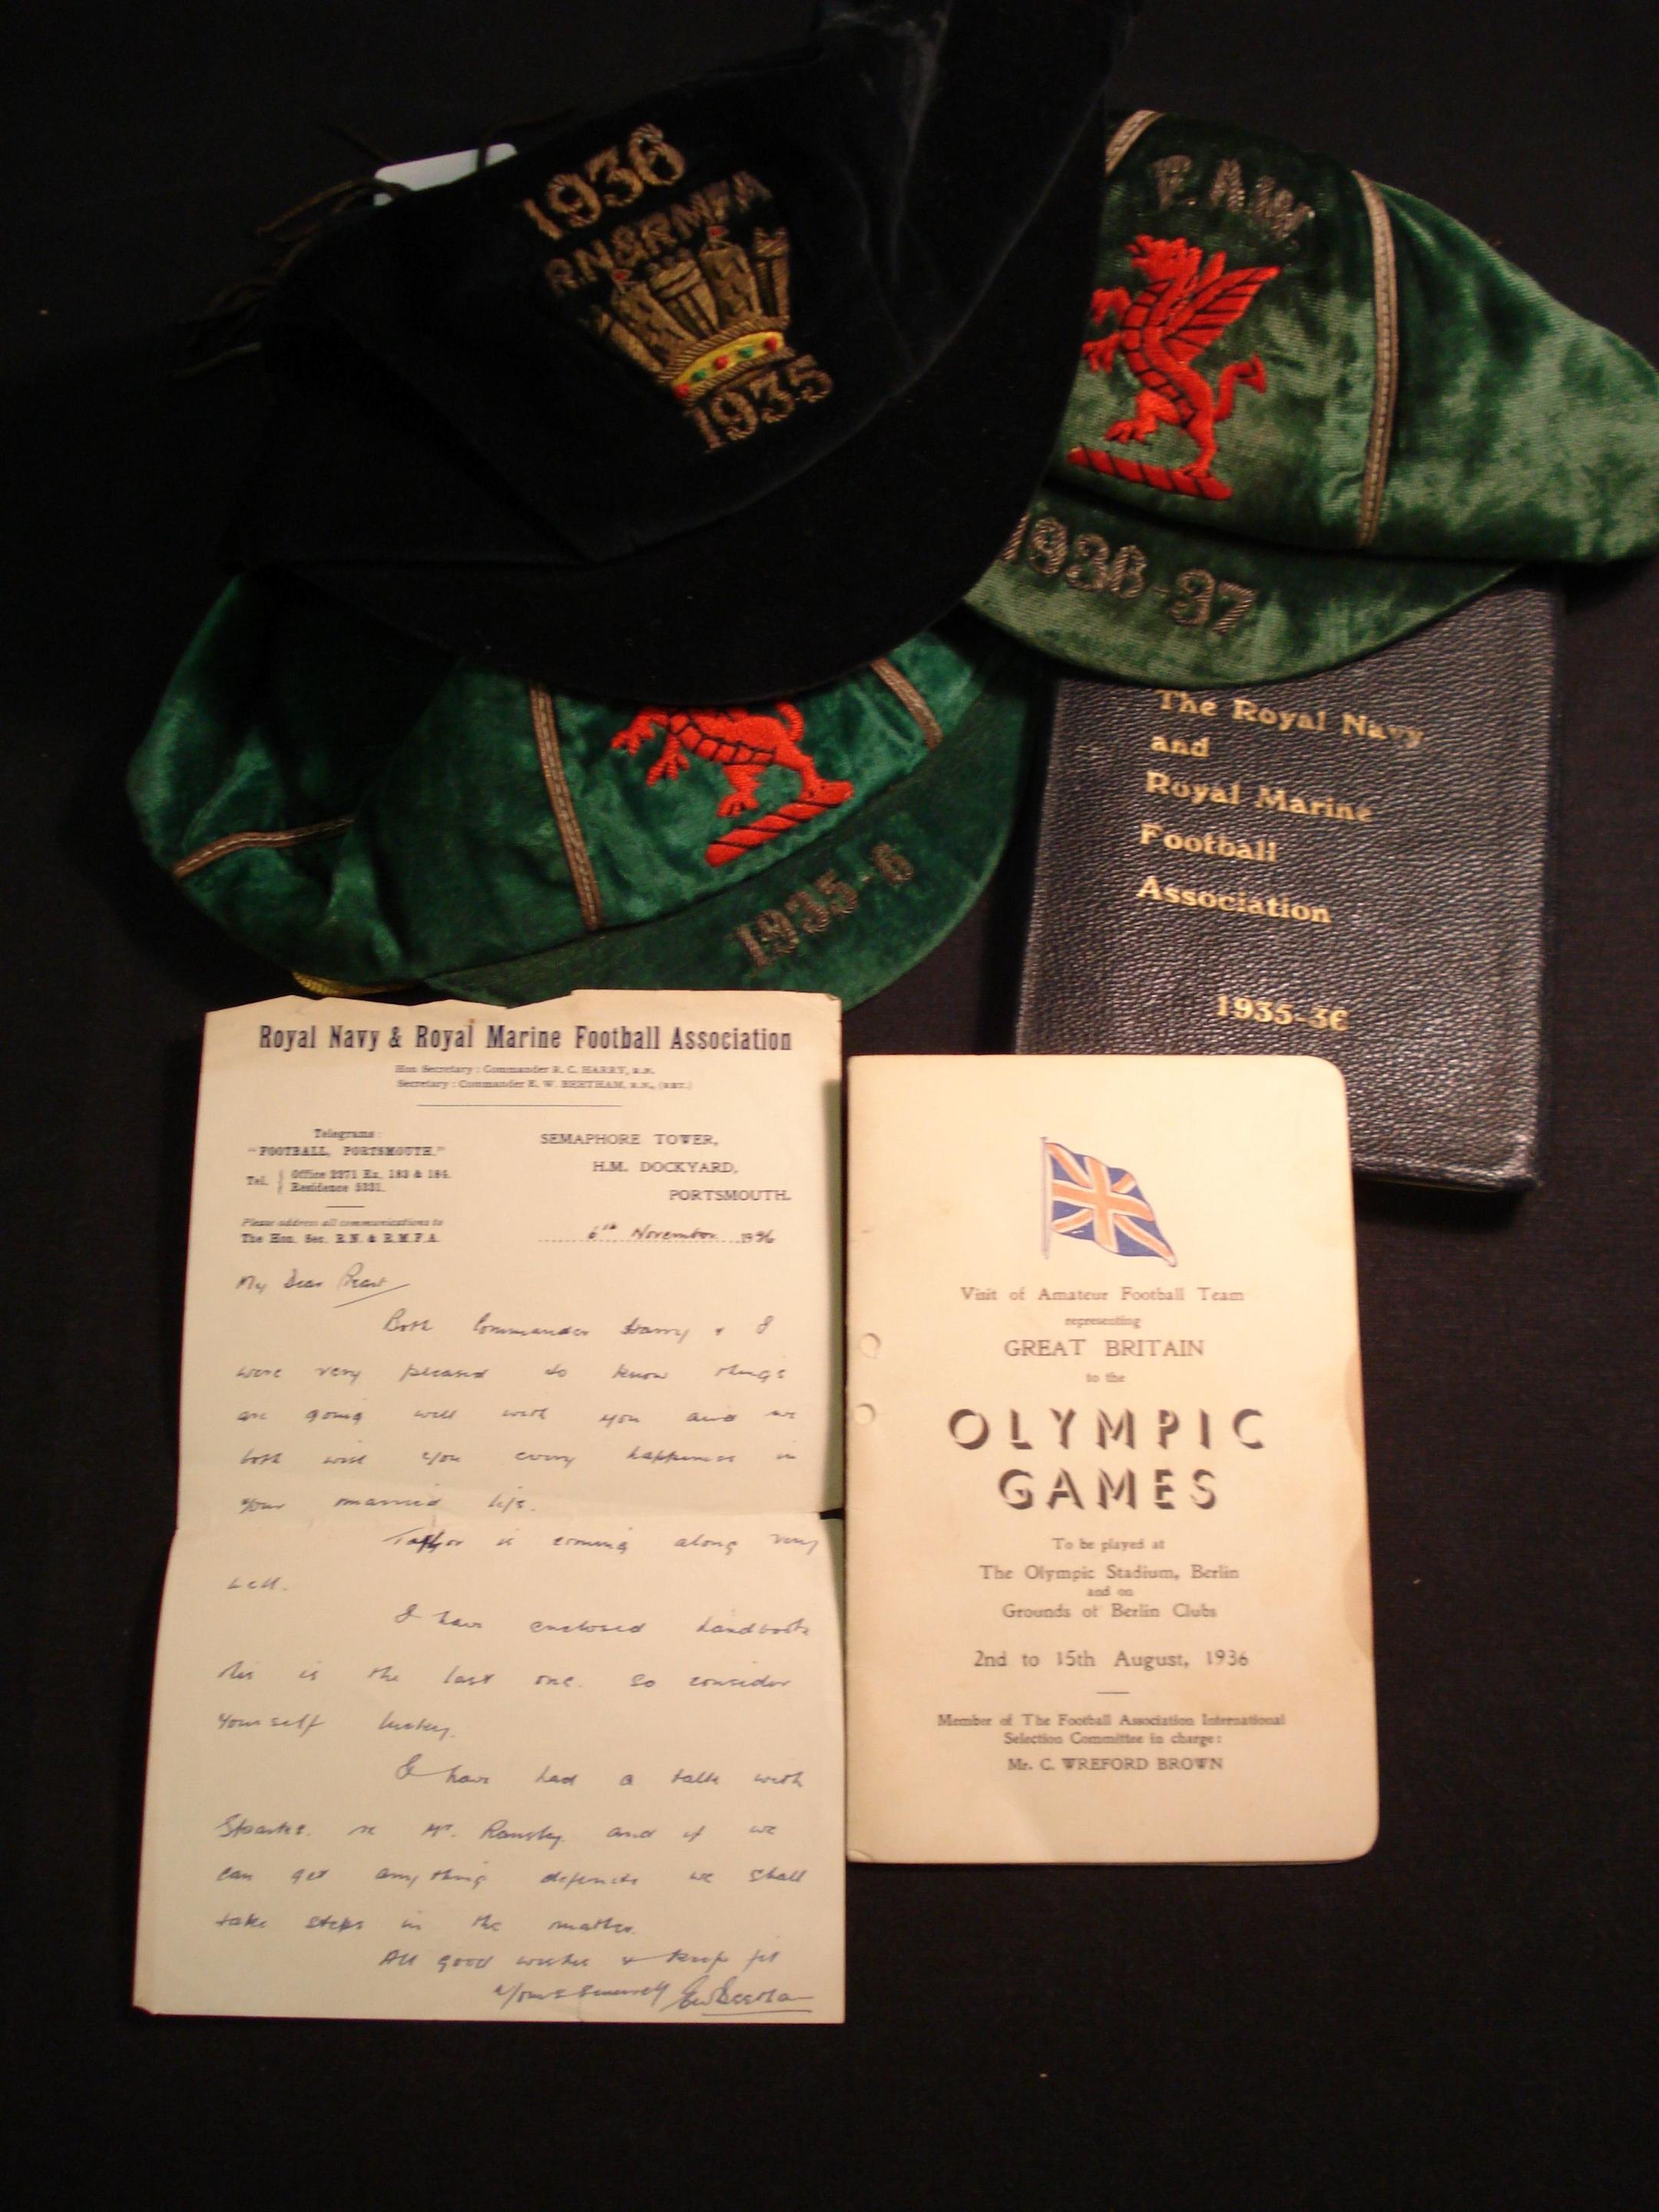 1936
R.N&RMFA
1935
F.A.W.
1936-37
1935-6
The Royal Navy
and
Royal Marine
Football
Association
1935-36
Royal Navy & Royal Marine Football Association
Hon Secretary : Commander R. C. HARRY, R.N.
Secretary : Commander E. W. BEETHAM, R.N., (RET.)
Telegrams :
"FOOTBALL, PORTSMOUTH."
Tel. Office 2271 Ex. 183 & 184.
Residence 5331.
Please address all communications to
The Hon. Sec. R.N. & R.M.F.A.
SEMAPHORE TOWER,
H.M. DOCKYARD,
PORTSMOUTH.
6th November 1936
My Dear
Both Commander Harry & I
were very pleased to know things
are going well with you and we
both wish you every happiness in
your married life.
Taylor is coming along very
well.
I have enclosed handbook
this is the last one. so consider
yourself lucky.
I have had a talk with
re Mr. and if we
can get anything definite we shall
take steps in the matter.
All good wishes & keep fit
Yours sincerely
Visit of Amateur Football Team
representing
GREAT BRITAIN
to the
OLYMPIC
GAMES
To be played at
The Olympic Stadium, Berlin
and on
Grounds of Berlin Clubs
2nd to 15th August, 1936
Member of The Football Association International
Selection Committee in charge:
Mr. C. WREFORD BROWN